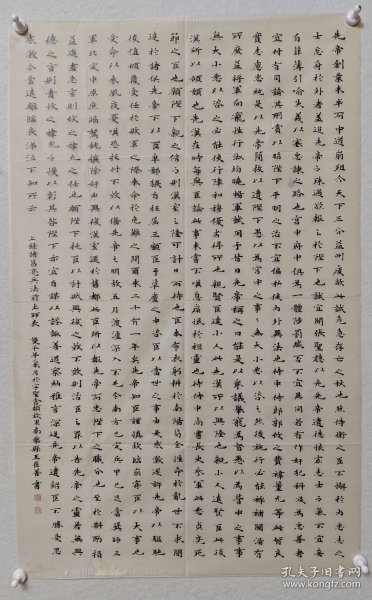 先帝創業未半而中道崩殂今天下三分益州疲敝此誠危急存亡之秋也然侍衛之臣不懈於內忠志之
士忘身於外者蓋追先帝之殊遇欲報之於陛下也誠宜開張聖聽以光先帝遺德恢宏志士之氣不宜妄
自菲薄引喻失義以塞忠諫之路也宮中府中俱為一體陟罰臧否不宜異同若有作奸犯科及為忠善者
宜付有司論其刑賞以昭陛下平明之治不宜偏私使內外異法也侍中侍郎郭攸之費禕董允等此皆良
實志慮忠純是以先帝簡拔以遺陛下愚以為宮中之事事無大小悉以咨之然後施行必能裨補闕漏有
所廣益將軍向寵性行淑均曉暢軍事試用於昔日先帝稱之曰能是以眾議舉寵為督愚以為營中之事事
無大小悉以咨之必能使行陣和穆優劣得所也親賢臣遠小人此先漢所以興隆也親小人遠賢臣此後
漢所以傾頹也先帝在時每與臣論此事未嘗不嘆息痛恨於桓靈也侍中尚書長史參軍此悉貞亮死
節之臣也願陛下親之信之則漢室之隆可計日而待也臣本布衣躬耕於南陽苟全性命於亂世不求聞
達於諸侯先帝不以臣卑鄙猥自枉屈三顧臣於草廬之中諮臣以當世之事由是感激遂許先帝以驅馳
後值傾覆受任於敗軍之際奉命於危難之間爾來二十有一年矣先帝知臣謹慎故臨崩寄臣以大事也
受命以來夙夜憂嘆恐託付不效以傷先帝之明故五月渡瀘深入不毛今南方已定兵甲已足當獎帥三
軍北定中原庶竭駑鈍攘除奸凶興復漢室還於舊都此臣所以報先帝而忠陛下之職分也至於斟酌損
益進盡忠言則攸之禕允之任也願陛下託臣以討賊興復之效不效則治臣之罪以告先帝之靈若無興
德之言則責攸之禕允等之慢以彰其咎陛下亦宜自謀以諮諏善道察納雅言深追先帝遺詔臣不勝受恩
感激今當遠離臨表涕泣不知所云
上錄諸葛亮出師表 南樂縣王崔善書
孔夫子旧书网